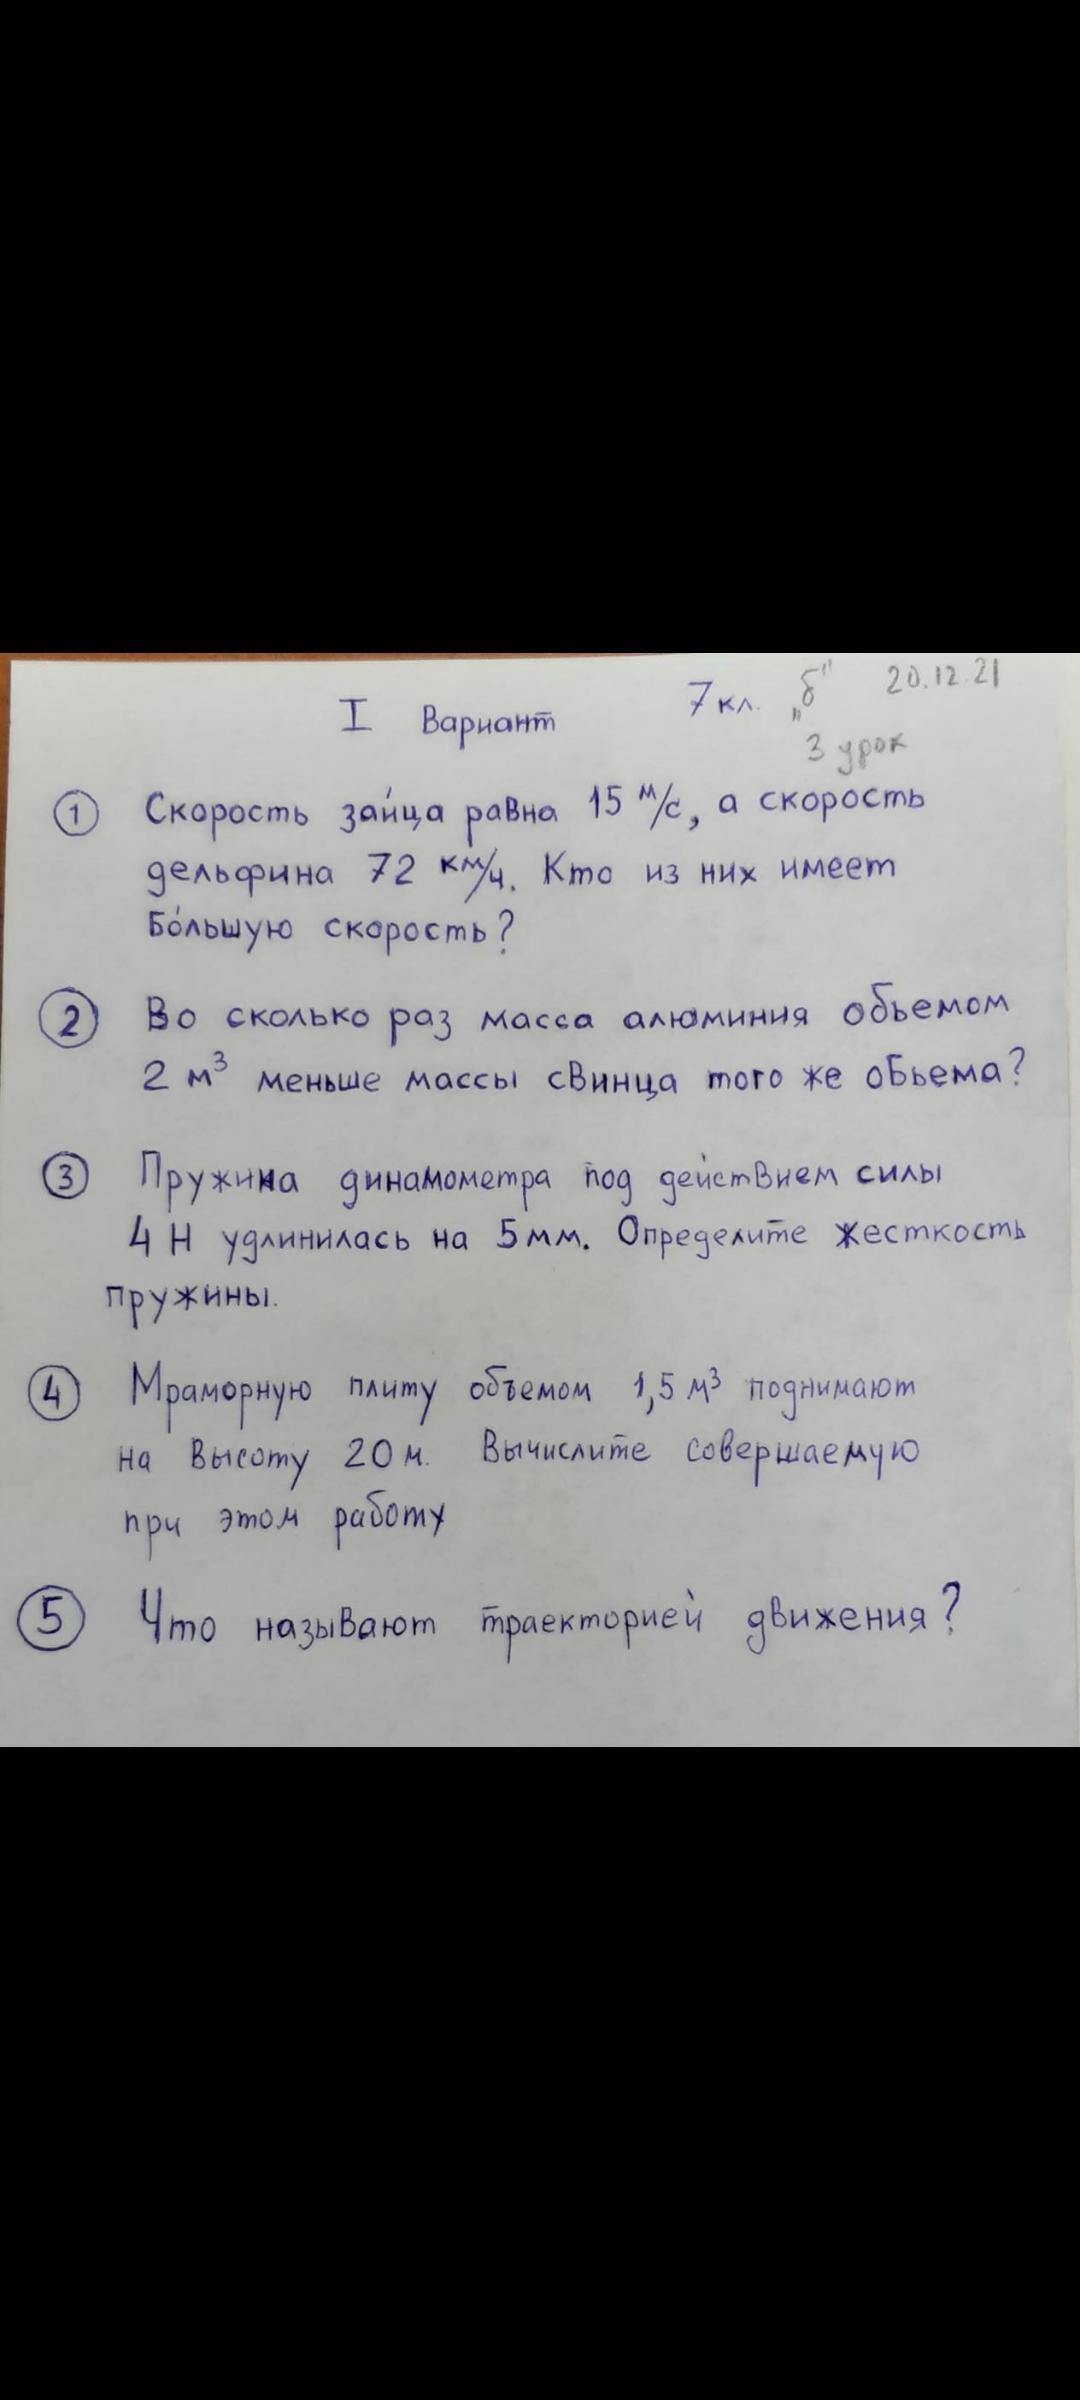 I Вариант 7 кл. „б“ 20.12.21
3 урок
1 Скорость зайца равна 15 м/с, а скорость
дельфина 72 км/ч. Кто из них имеет
бóльшую скорость?
2 Во сколько раз масса алюминия обьемом
2 м³ меньше массы свинца того же обьема?
3 Пружина динамометра под действием силы
4 Н удлинилась на 5 мм. Определите жесткость
пружины.
4 Мраморную плиту объемом 1,5 м³ поднимают
на высоту 20 м. Вычислите совершаемую
при этом работу
5 Что называют траекторией движения?